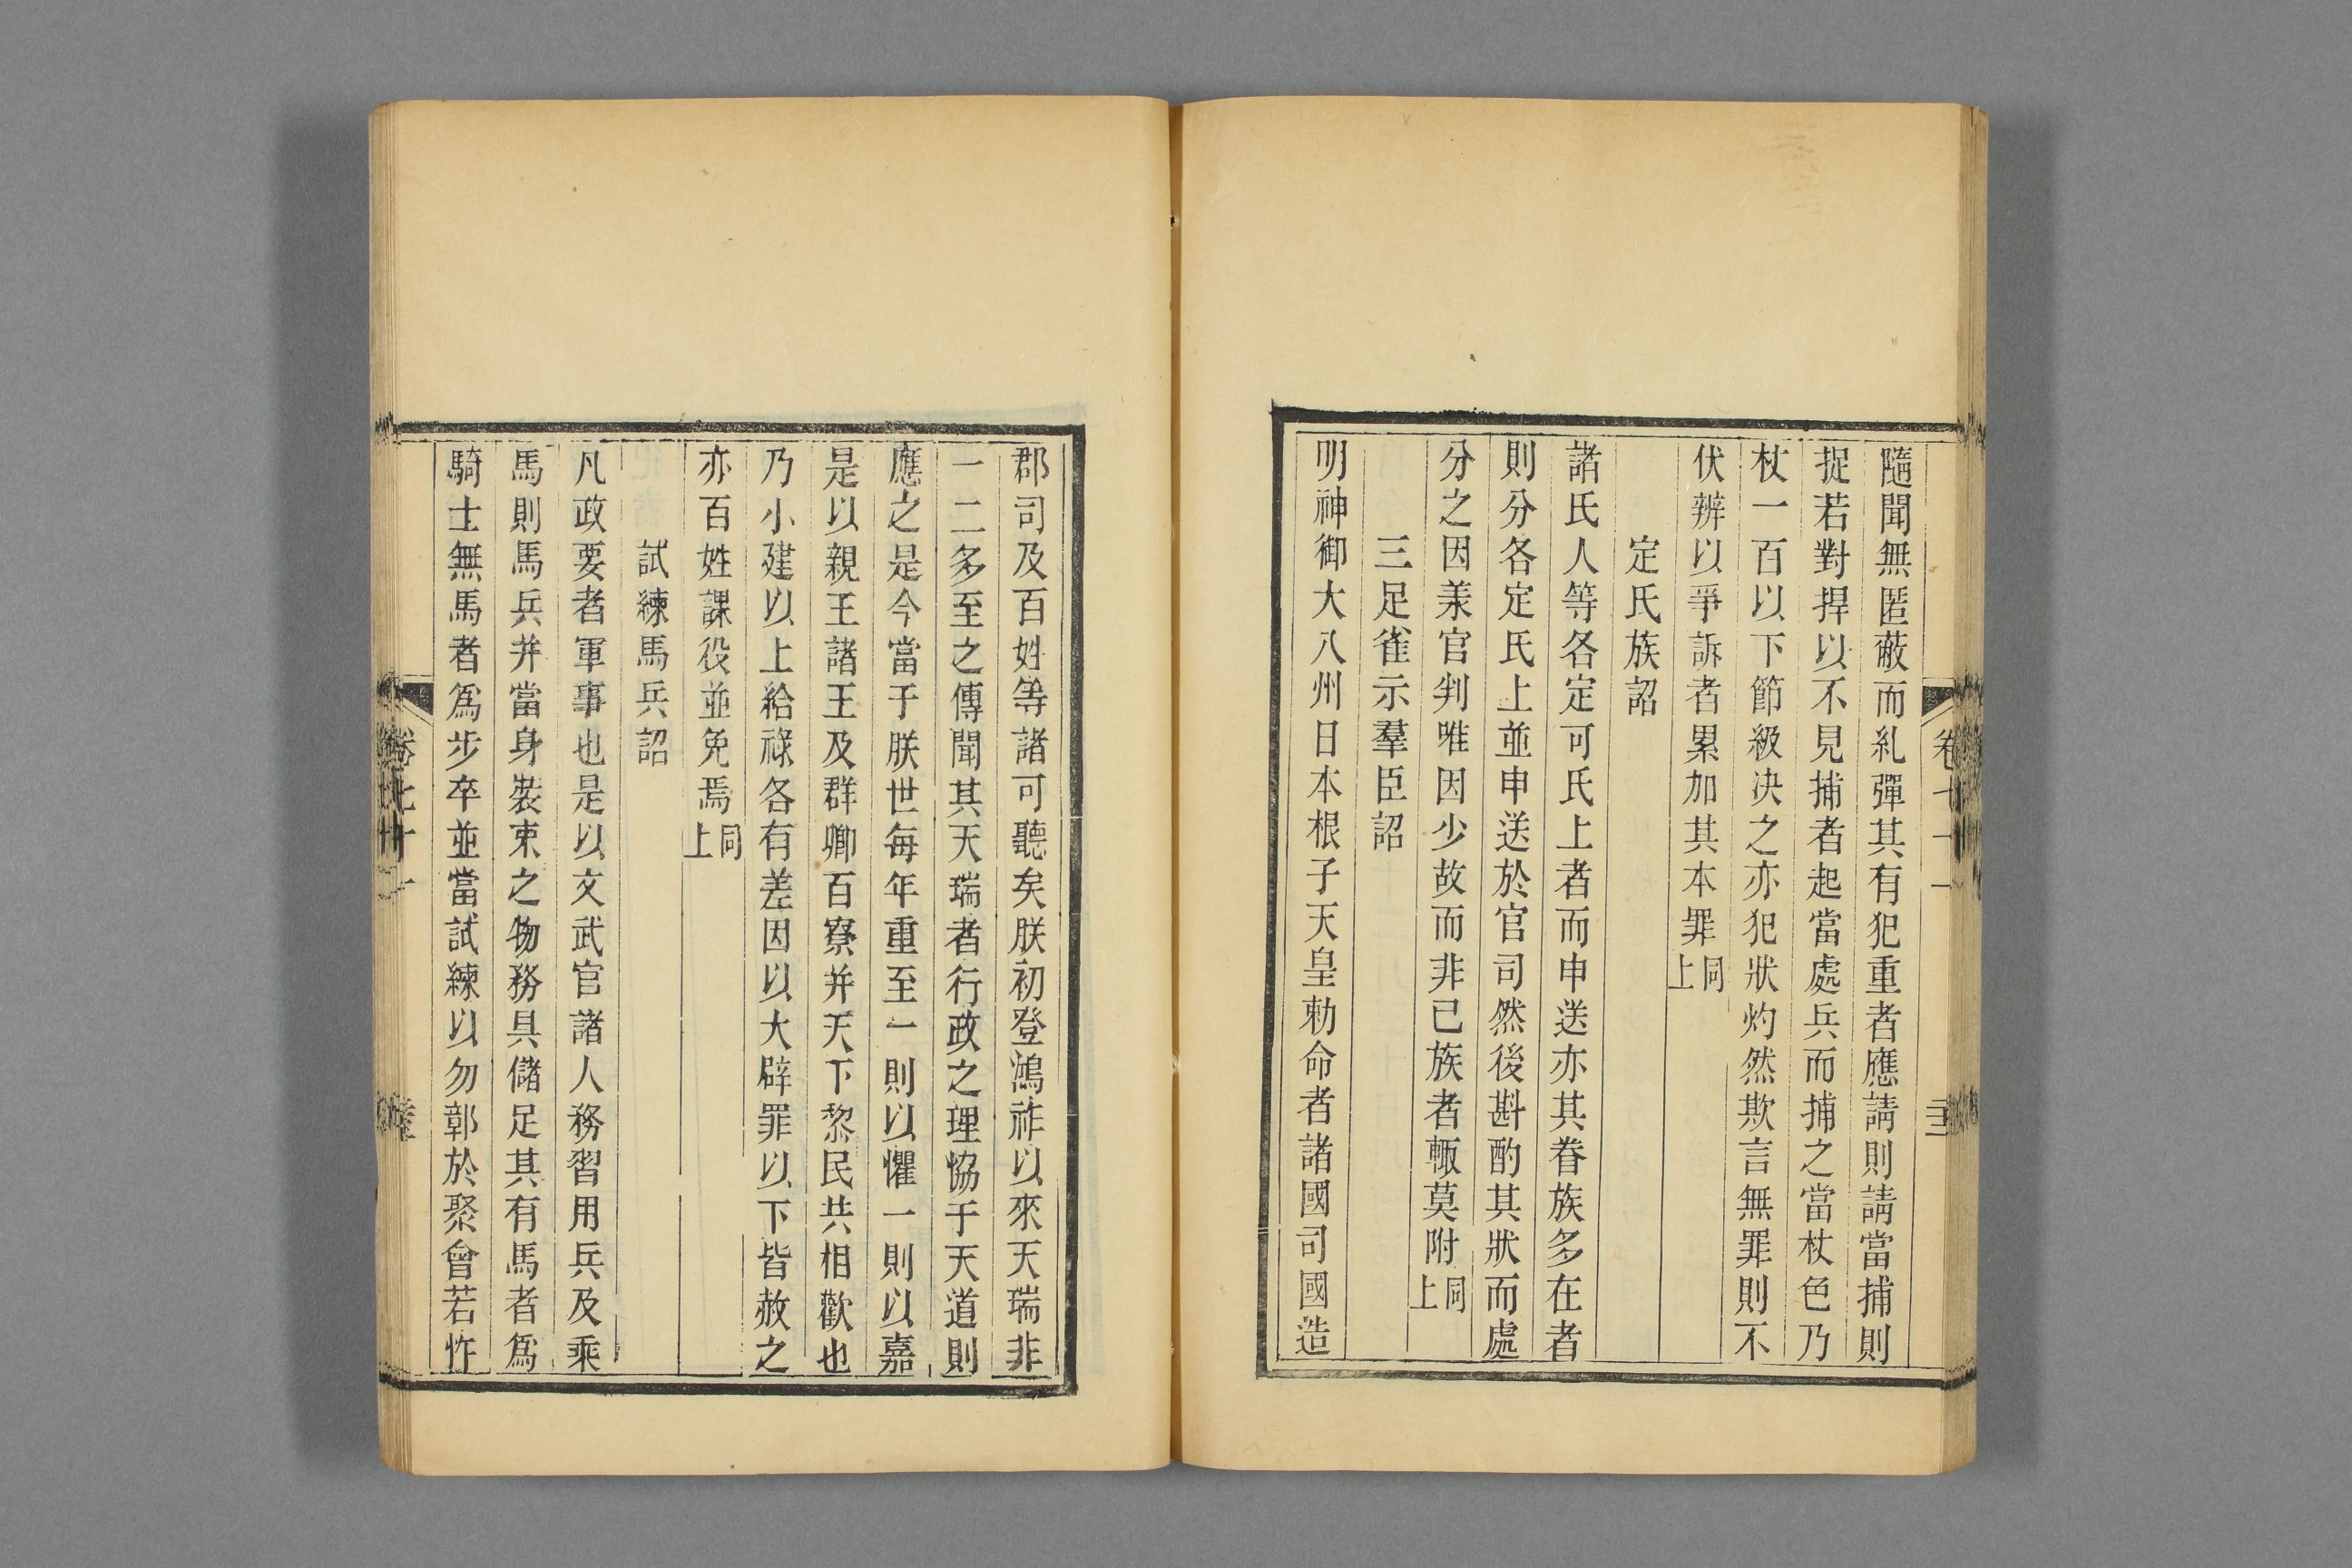 隨聞無匿蔽而糺彈其有犯重者應請則請當捕則
捉若對捍以不見捕者起當處兵而捕之當杖色乃
杖一百以下節級决之亦犯狀灼然欺言無罪則不
伏辨以爭訴者累加其本罪同上
定氏族詔
諸氏人等各定可氏上者而申送亦其眷族多在者
則分各定氏上並申送於官司然後斟酌其狀而處
分之因羕官判唯因少故而非已族者輙莫附同上
三足雀示羣臣詔
明神御大八州日本根子天皇勅命者諸國司國造
郡司及百姓等諸可聽矣朕初登鴻祚以來天瑞非
一二多至之傳聞其天瑞者行政之理協于天道則
應之是今當于朕世每年重至一則以懼一則以嘉
是以親王諸王及群卿百寮并天下黎民共相歡也
乃小建以上給祿各有差因以大辟罪以下皆赦之
亦百姓課役並免焉同上
試練馬兵詔
凡政要者軍事也是以文武官諸人務習用兵及乘
馬則馬兵并當身裝束之物務具儲足其有馬者爲
騎士無馬者爲步卒並當試練以勿鄣於聚會若忤
卷七十一